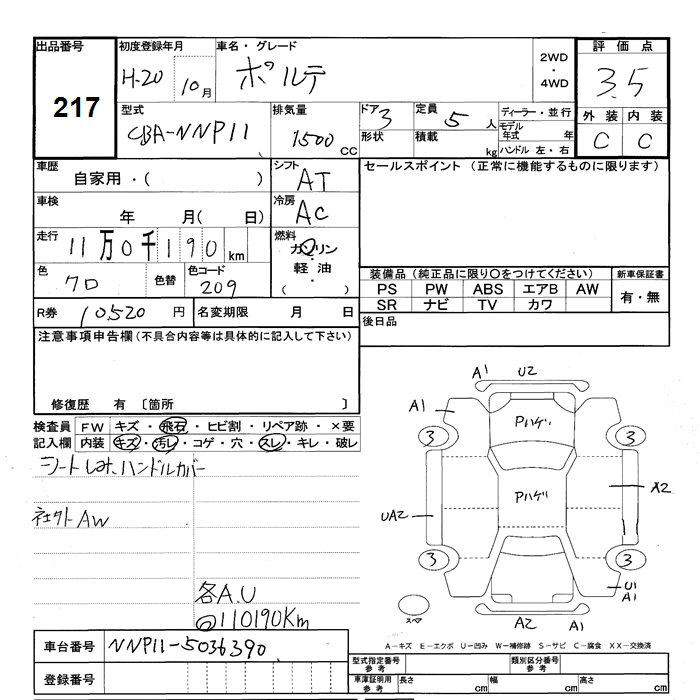 出品番号
217
初度登録年月
H-20 10月
車名・グレード
ポルテ
2WD
・
4WD
評価点
3.5
外装 内装
C C
型式
CBA-NNP11
排気量
1500 CC
ドア 3
形状
定員 5 人
積載 kg
ディーラー・並行
モデル年式 年
ハンドル 左・右
車歴
自家用・( )
シフト
AT
セールスポイント (正常に機能するものに限ります)
車検
年 月( 日)
冷房
AC
走行 11万0千190 km
燃料
ガソリン
・
軽油
( )
色 クロ
色替
色コード
209
装備品(純正品に限り〇をつけてください)
新車保証書
PS PW ABS エアB AW
SR ナビ TV カワ
有・無
R券 10520 円
名変期限 月 日
後日品
注意事項申告欄(不具合内容等は具体的に記入して下さい)
修復歴 有 〔箇所 〕
検査員記入欄
FW キズ・飛石・ヒビ割・リペア跡・×要
内装 キズ・汚レ・コゲ・穴・スレ・キレ・破レ
ハンドルカバー
社外AW
各A.U
@110190Km
A1 U2
A1
Pハゲ
3 3
Pハゲ
UA2
X2
3 3
U1
A1
スペア
A2 A1
A-キズ E-エクボ U-凹み W-補修跡 S-サビ C-腐食 XX-交換済
車台番号 NNP11-5036390
登録番号
型式指定番号
参考
類別区分番号
参考
車庫証明用
参考
長さ cm 幅 cm 高さ cm